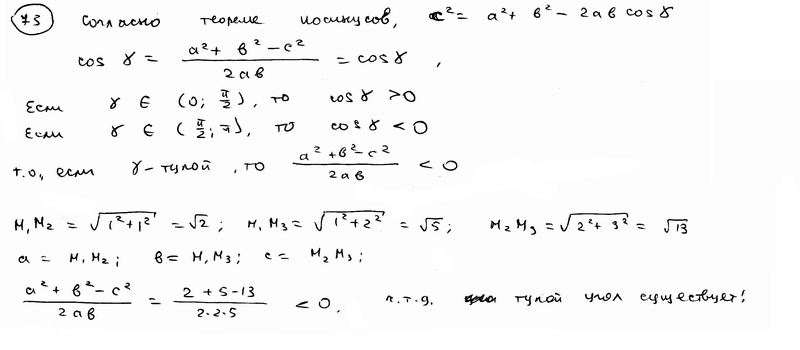 73 Согласно теореме косинусов, c² = a² + b² − 2ab cos γ
cos γ = (a² + b² − c²) / 2ab = cos γ ,
Если γ ∈ (0; π/2), то cos γ > 0
Если γ ∈ (π/2; π), то cos γ < 0
т.о., если γ - тупой, то (a² + b² − c²) / 2ab < 0
M₁M₂ = √(1² + 1²) = √2 ; M₁M₃ = √(1² + 2²) = √5 ; M₂M₃ = √(2² + 3²) = √13
a = M₁M₂ ; b = M₁M₃ ; c = M₂M₃ ;
(a² + b² − c²) / 2ab = (2 + 5 - 13) / (2·2·5) < 0. ч.т.д. тупой угол существует!